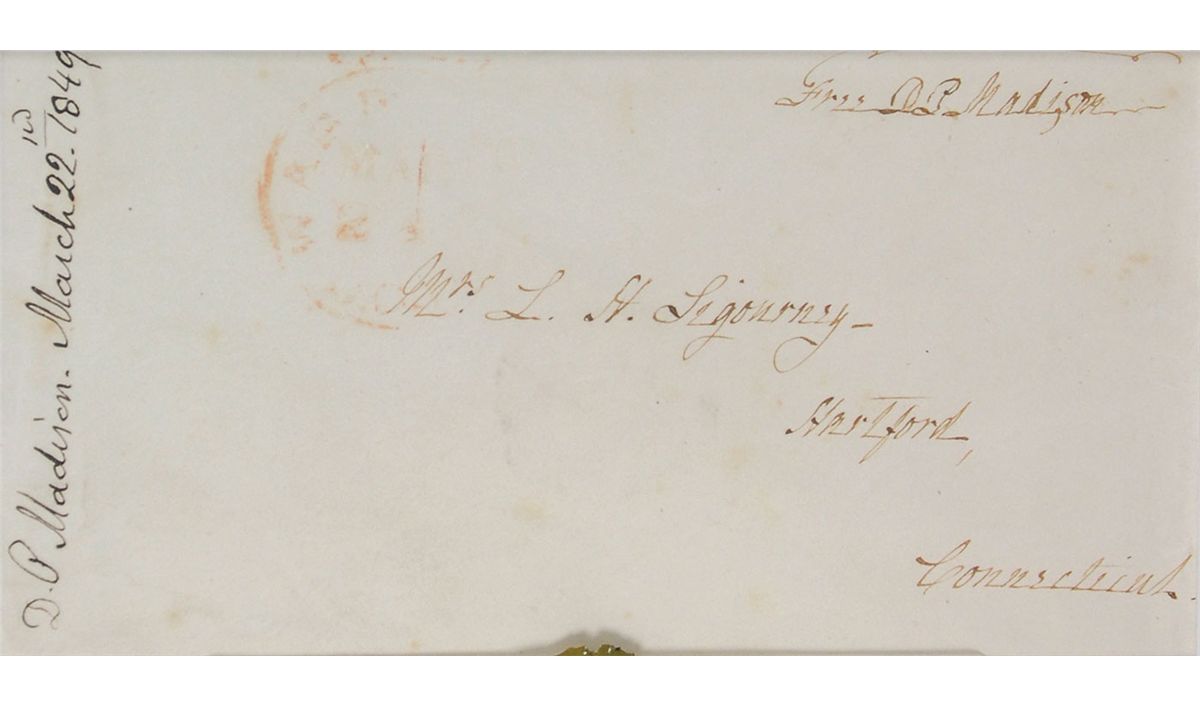 Free D P Madison
Mrs. L. H. Sigourney-
Hartford,
Connecticut.
D. P Madison. March 22nd. 1849